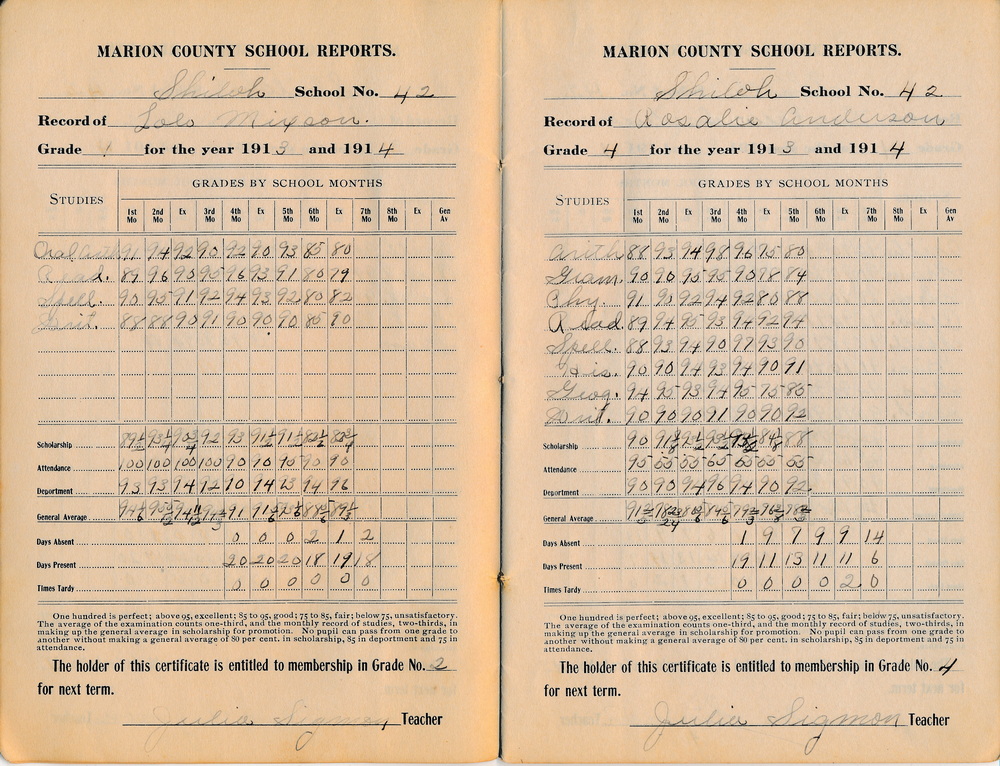 MARION COUNTY SCHOOL REPORTS.
Shiloh School No. 42
Record of Lois Mixson.
Grade 1 for the year 1913 and 1914
STUDIES
GRADES BY SCHOOL MONTHS
1st Mo 2nd Mo Ex 3rd Mo 4th Mo Ex 5th Mo 6th Mo Ex 7th Mo 8th Mo Ex Gen Av
Oral Arith 91 94 92 90 92 90 93 85 80
Read. 89 96 90 95 96 93 91 80 79
Spell. 90 95 91 92 94 93 92 80 82
Writ. 88 88 90 91 90 90 90 85 80
Scholarship 92 93
Attendance 100 100 100 100 90 90 90 90
Department 93 93 94 92 90 94 93 94 96
General Average 91
Days Absent 0 0 0 2 1 2
Days Present 20 20 20 18 19 18
Times Tardy 0 0 0 0 0 0
One hundred is perfect; above 95, excellent; 85 to 95, good; 75 to 85, fair; below 75, unsatisfactory.
The average of the examination counts one-third, and the monthly record of studies, two-thirds, in
making up the general average in scholarship for promotion. No pupil can pass from one grade to
another without making a general average of 80 per cent. in scholarship, 85 in department and 75 in
attendance.
The holder of this certificate is entitled to membership in Grade No. 2
for next term.
Julia Sigmon Teacher
MARION COUNTY SCHOOL REPORTS.
Shiloh School No. 42
Record of Rosalie Anderson
Grade 4 for the year 1913 and 1914
STUDIES
GRADES BY SCHOOL MONTHS
1st Mo 2nd Mo Ex 3rd Mo 4th Mo Ex 5th Mo 6th Mo Ex 7th Mo 8th Mo Ex Gen Av
Arith 88 93 94 98 96 75 80
Gram. 90 90 95 95 90 78 84
Phy. 91 90 92 94 92 80 88
Read 89 94 95 93 94 92 94
Spell. 88 93 94 90 97 93 90
His. 90 90 94 93 94 90 91
Geog. 94 95 93 94 95 75 85
Writ. 90 90 90 91 90 90 92
Scholarship 90 88
Attendance 95 55 55 65 65 55 55
Department 90 90 94 96 94 90 92
General Average
Days Absent 1 9 7 9 9 14
Days Present 19 11 13 11 11 6
Times Tardy 0 0 0 0 2 0
One hundred is perfect; above 95, excellent; 85 to 95, good; 75 to 85, fair; below 75, unsatisfactory.
The average of the examination counts one-third, and the monthly record of studies, two-thirds, in
making up the general average in scholarship for promotion. No pupil can pass from one grade to
another without making a general average of 80 per cent. in scholarship, 85 in department and 75 in
attendance.
The holder of this certificate is entitled to membership in Grade No. 4
for next term.
Julia Sigmon Teacher